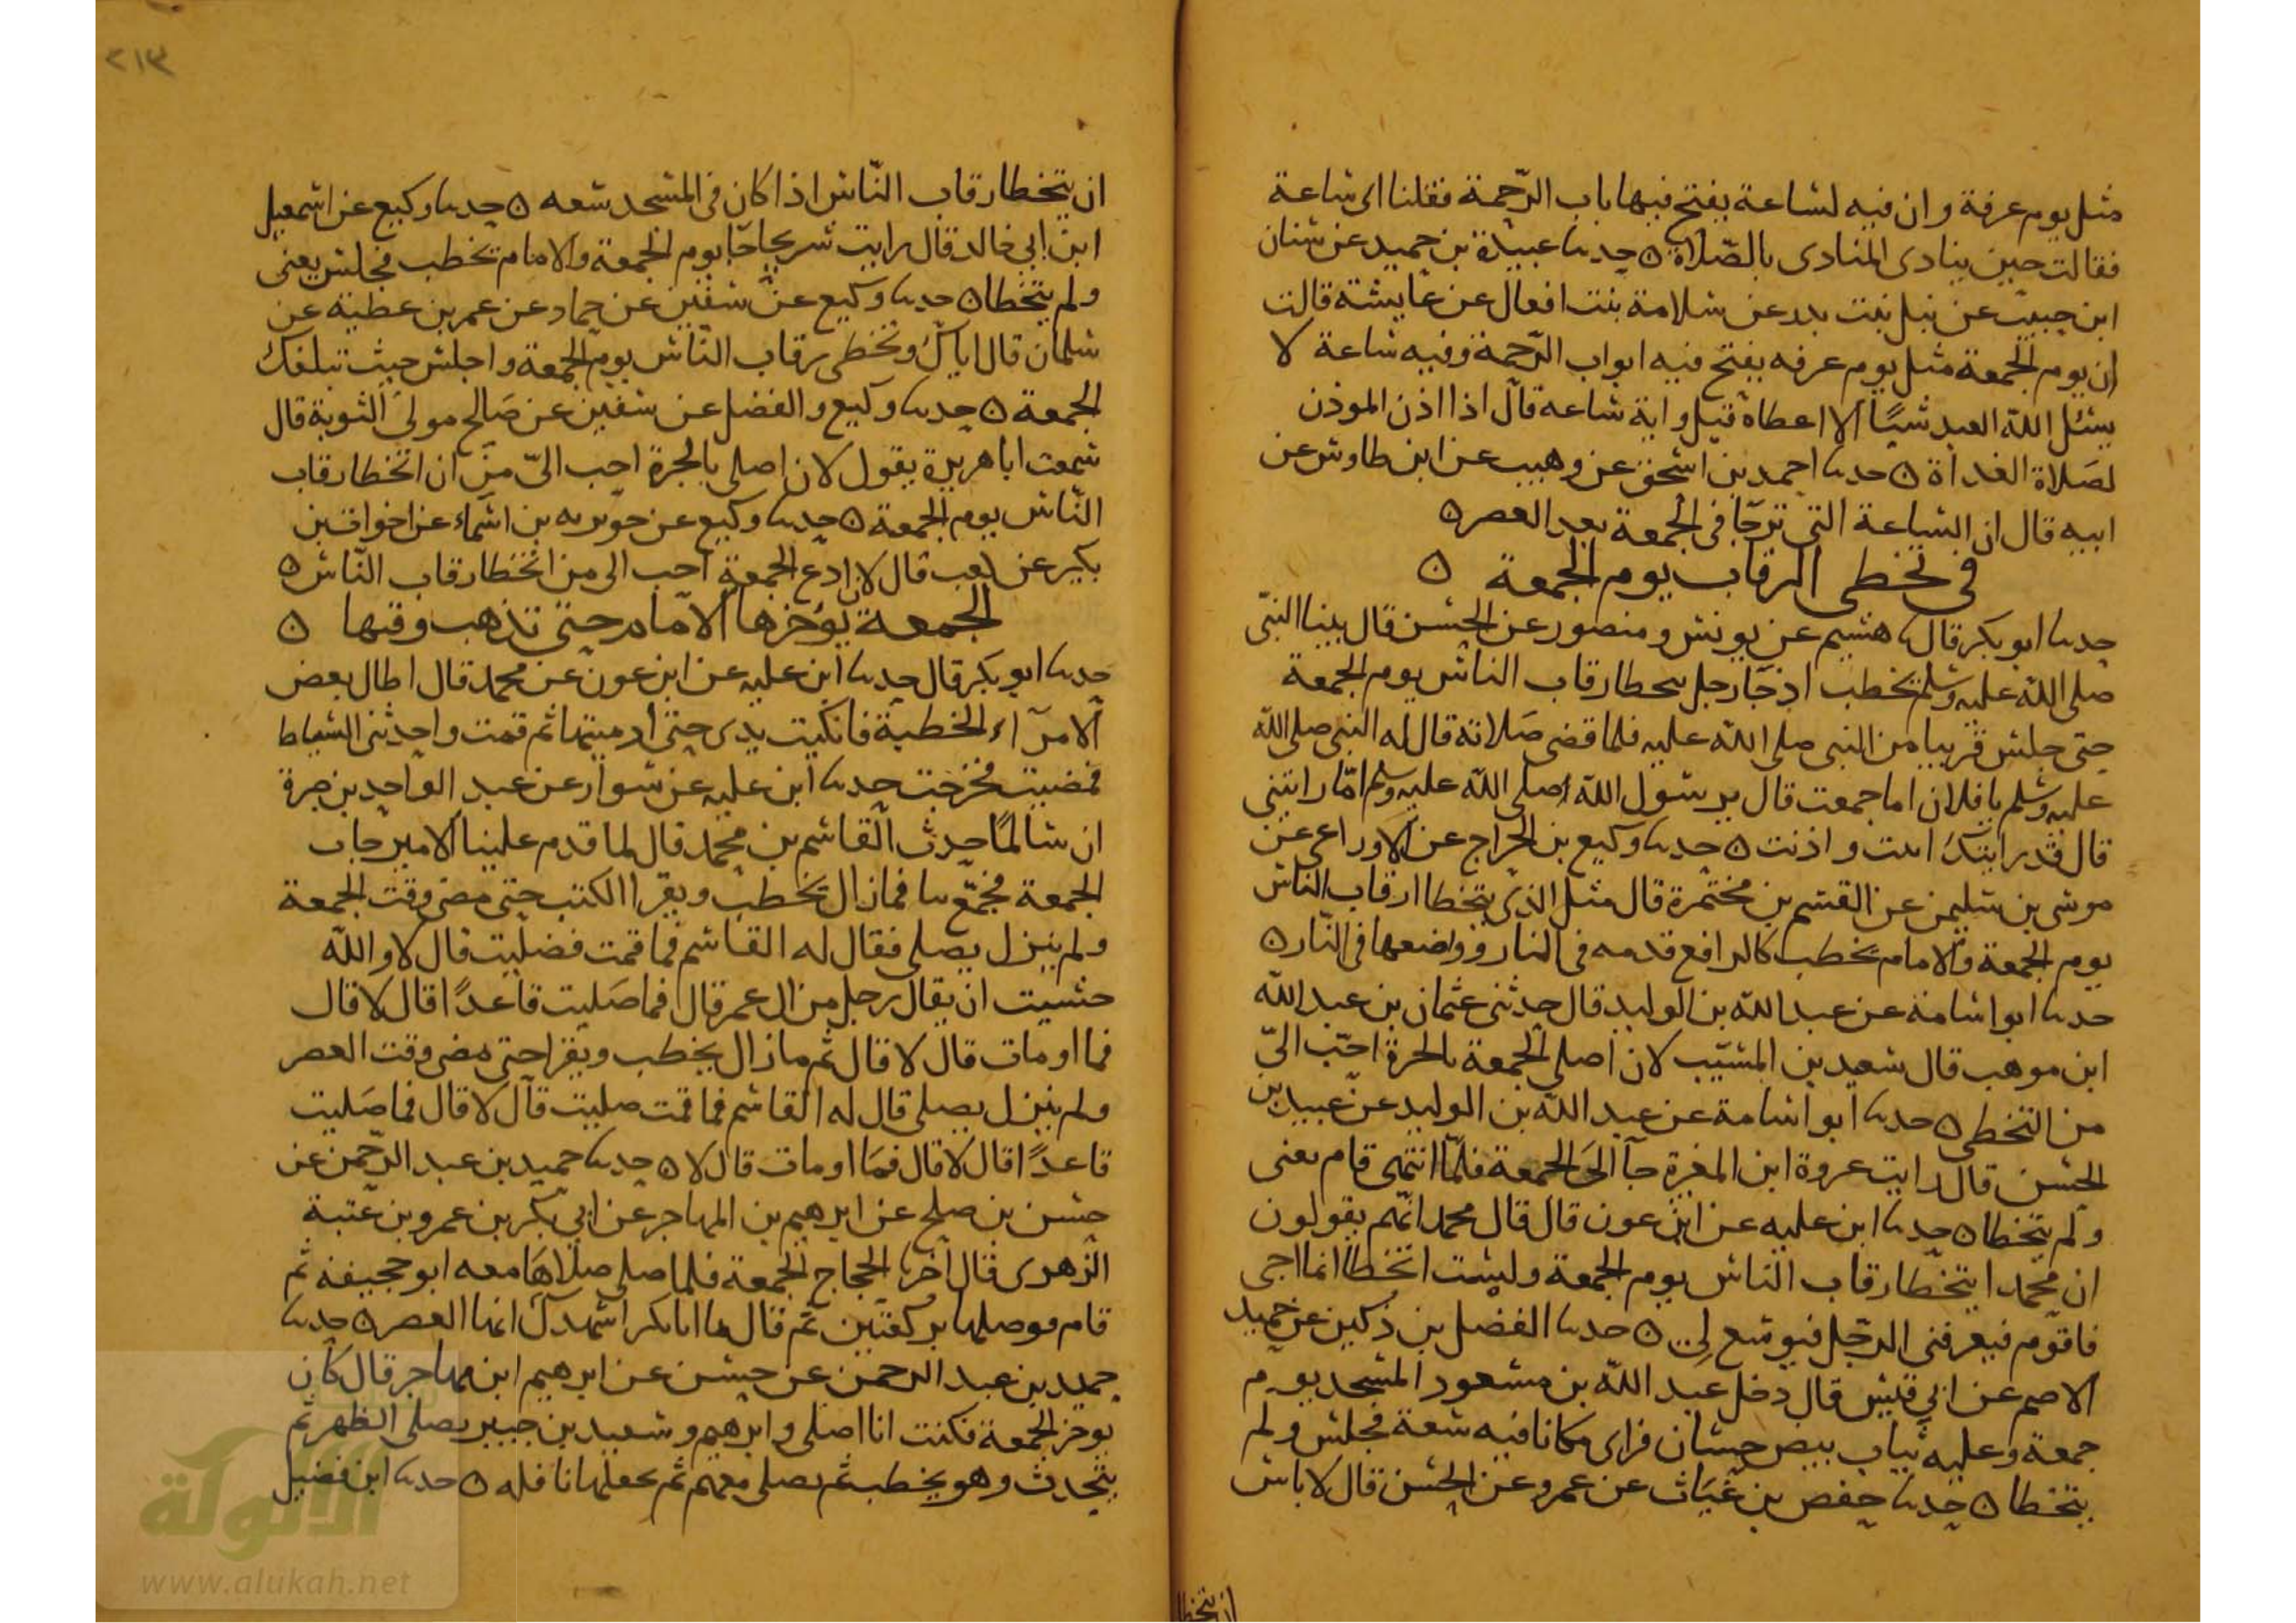 مثل يوم عرفة وان فيه لساعة يفتح فيها باب الرّحمة فقلنا اى ساعة
فقالت حين ينادى المنادى بالصّلاة ه حدىىا عبيدة بن حميد عن سنان
ابن حبيب عن نبل بنت بدر عن سلامة بنت افعال عن عايشة قالت
ان يوم الجمعة مثل يوم عرفه يفتح فيه ابواب الرّحمة وفيه ساعة لا
يسئل اللّه العبد شيًا الا اعطاه قيل واية ساعه قال اذا اذن الموذن
لصَلاة الغداة ه حدىىا احمد بن اسحق عن وهيب عن ابن طاوس عن
ابيه قال ان الساعة التى ترجّا فى الجمعة بعد العصر ه
فى تخطى الرقاب يوم الجمعة ه
حدىىا ابو بكر قال ىا هشيم عن يونس ومنصور عن الحسن قال بينا النبىّ
صلى اللّه عليه وسلم يخطب اذ جآ رجل يىحطا رقاب الناس يوم الجمعة
حتى جلس قريبا من النبى صلى اللّه عليه فلما قضى صَلاته قال له النبى صلى اللّه
عليه وسلم يا فلان اما جمعت قال يرسول اللّه صلى اللّه عليه وسلم امّا رايتنى
قال قد رايتك انىت واذنت ه حدىىا وكيع بن الجراح عن الاوزاعى عن
موسى بن سليمن عن القسم بن مخيمرة قال مثل الذى يتخطا ارقاب الناس
يوم الجمعة والامام يخطب كالرافع قدمه فى النار وواضعها فى النّار ه
حدىىا ابو اسامة عن عبد اللّه بن الوليد قال حدثنى عثمان بن عبد اللّه
ابن موهب قال سعيد بن المسيّب لان اصلى الجمعة بالحرة احّب الىّ
من التخطى ه حدىىا ابو اسامة عن عبد اللّه بن الوليد عن عبيد بن
الحسن قال رايت عروة ابن المغرة جآ الى الجمعة فلمّا انتهى قام يعنى
ولم يتخطا ه حدىىا ابن عليه عن ابن عون قال قال محمد انّهم يقولون
ان محمدا يتخطا رقاب الناس يوم الجمعة ولست اتخطا انما اجى
فاقوم فيعرفنى الرجل فيوسع لى ه حدىىا الفضل بن دكين عن حميد
الاصم عن ابى قيس قال دخل عبد اللّه بن مسعود المسجد يوم
جمعة وعليه ثياب بيص حسان فراى مكانا فيه سعة فجلس ولم
يتخطا ه حدىىا حفص بن غياث عن عمرو عن الحسن قال لا باس
ان يتخطا
٢١٣
ان يتخطا رقاب النّاس اذا كان فى المسجد سعه ه حدىىا وكيع عن اسمعيل
ابن ابى خالد قال رايت شريحا جآ يوم الجمعة والامام يخطب فجلس يعنى
ولم يتخطا ه حدىىا وكيع عن سفين عن حماد عن عمر بن عطية عن
سلمان قال اياك وتخطى رقاب النّاس يوم الجمعة واجلس حيث تبلغك
الجمعة ه حدىىا وكيع والفضل عن سفين عن صَالح مولى الثوبة قال
سمعت ابا هريرة يقول لان اصلى بالحرة احب الىّ من ان اتخطا رقاب
النّاس يوم الجمعة ه حدىىا وكيع عن جويريه بن اسماء عن اخوات بن
بكير عن كعب قال لان ادع الجمعة احب الى من اتخطا رقاب النّاس ه
الجمعة يؤخرها الامام حتى تذهب وقتها ه
حدىىا ابو بكر قال حدىىا ابن عليه عن ابن عون عن محمد قال اطال بعض
الامرآء الخطبة فانكيت يدى حتى ادميتها ثم قمت واخدثنى السياط
فمضيت فخرجت حدىىا ابن عليه عن سوار عن عبد الواحد بن صبرة
ان سالمًا حدث القاسم بن محمد قال لما قدم علينا الامير جات
الجمعة فجمّع ىىا فمازال يخطب ويقرا الكتب حتى مضى وقت الجمعة
ولم ينزل يصلى فقال له القاسم فما قمت فصليت قال لا واللّه
خشيت ان يقال رجل من ال عمر قال فما صَليت قاعدًا قال لا قال
فما اومات قال لا قال ثم مازال يخطب ويقرا حتى مضى وقت العصر
ولم ينزل يصلى قال له القاسم فما قمت صليت قال لا قال فما صَليت
قاعدًا قال لا قال فمَا اومات قال لا ه حدىىا حميد بن عبد الرّحمن عن
حسن بن صلح عن ابرهيم بن المهاجر عن ابى بكر بن عمرو بن عتبة
الزهرى قال اخرىا الحجاج الجمعة فلما صلى صلاهَا معه ابو جحيفه ثم
قام فوصلها بركعتين ثم قال يا ابا بكر اشهدك انها العصر ه حدىىا
حميد بن عبد الرحمن عن حسن عن ابرهيم ابن مهاجر قال كان
يوخر الجمعة فكنت انا اصلى وابرهيم وسعيد بن جبير يصلى الظهر ثم
يتحدث وهو يخطب ثم يصلى معهم ثم يجعلها نافله ه حدىىا ابن فضيل
الألوكة
www.alukah.net